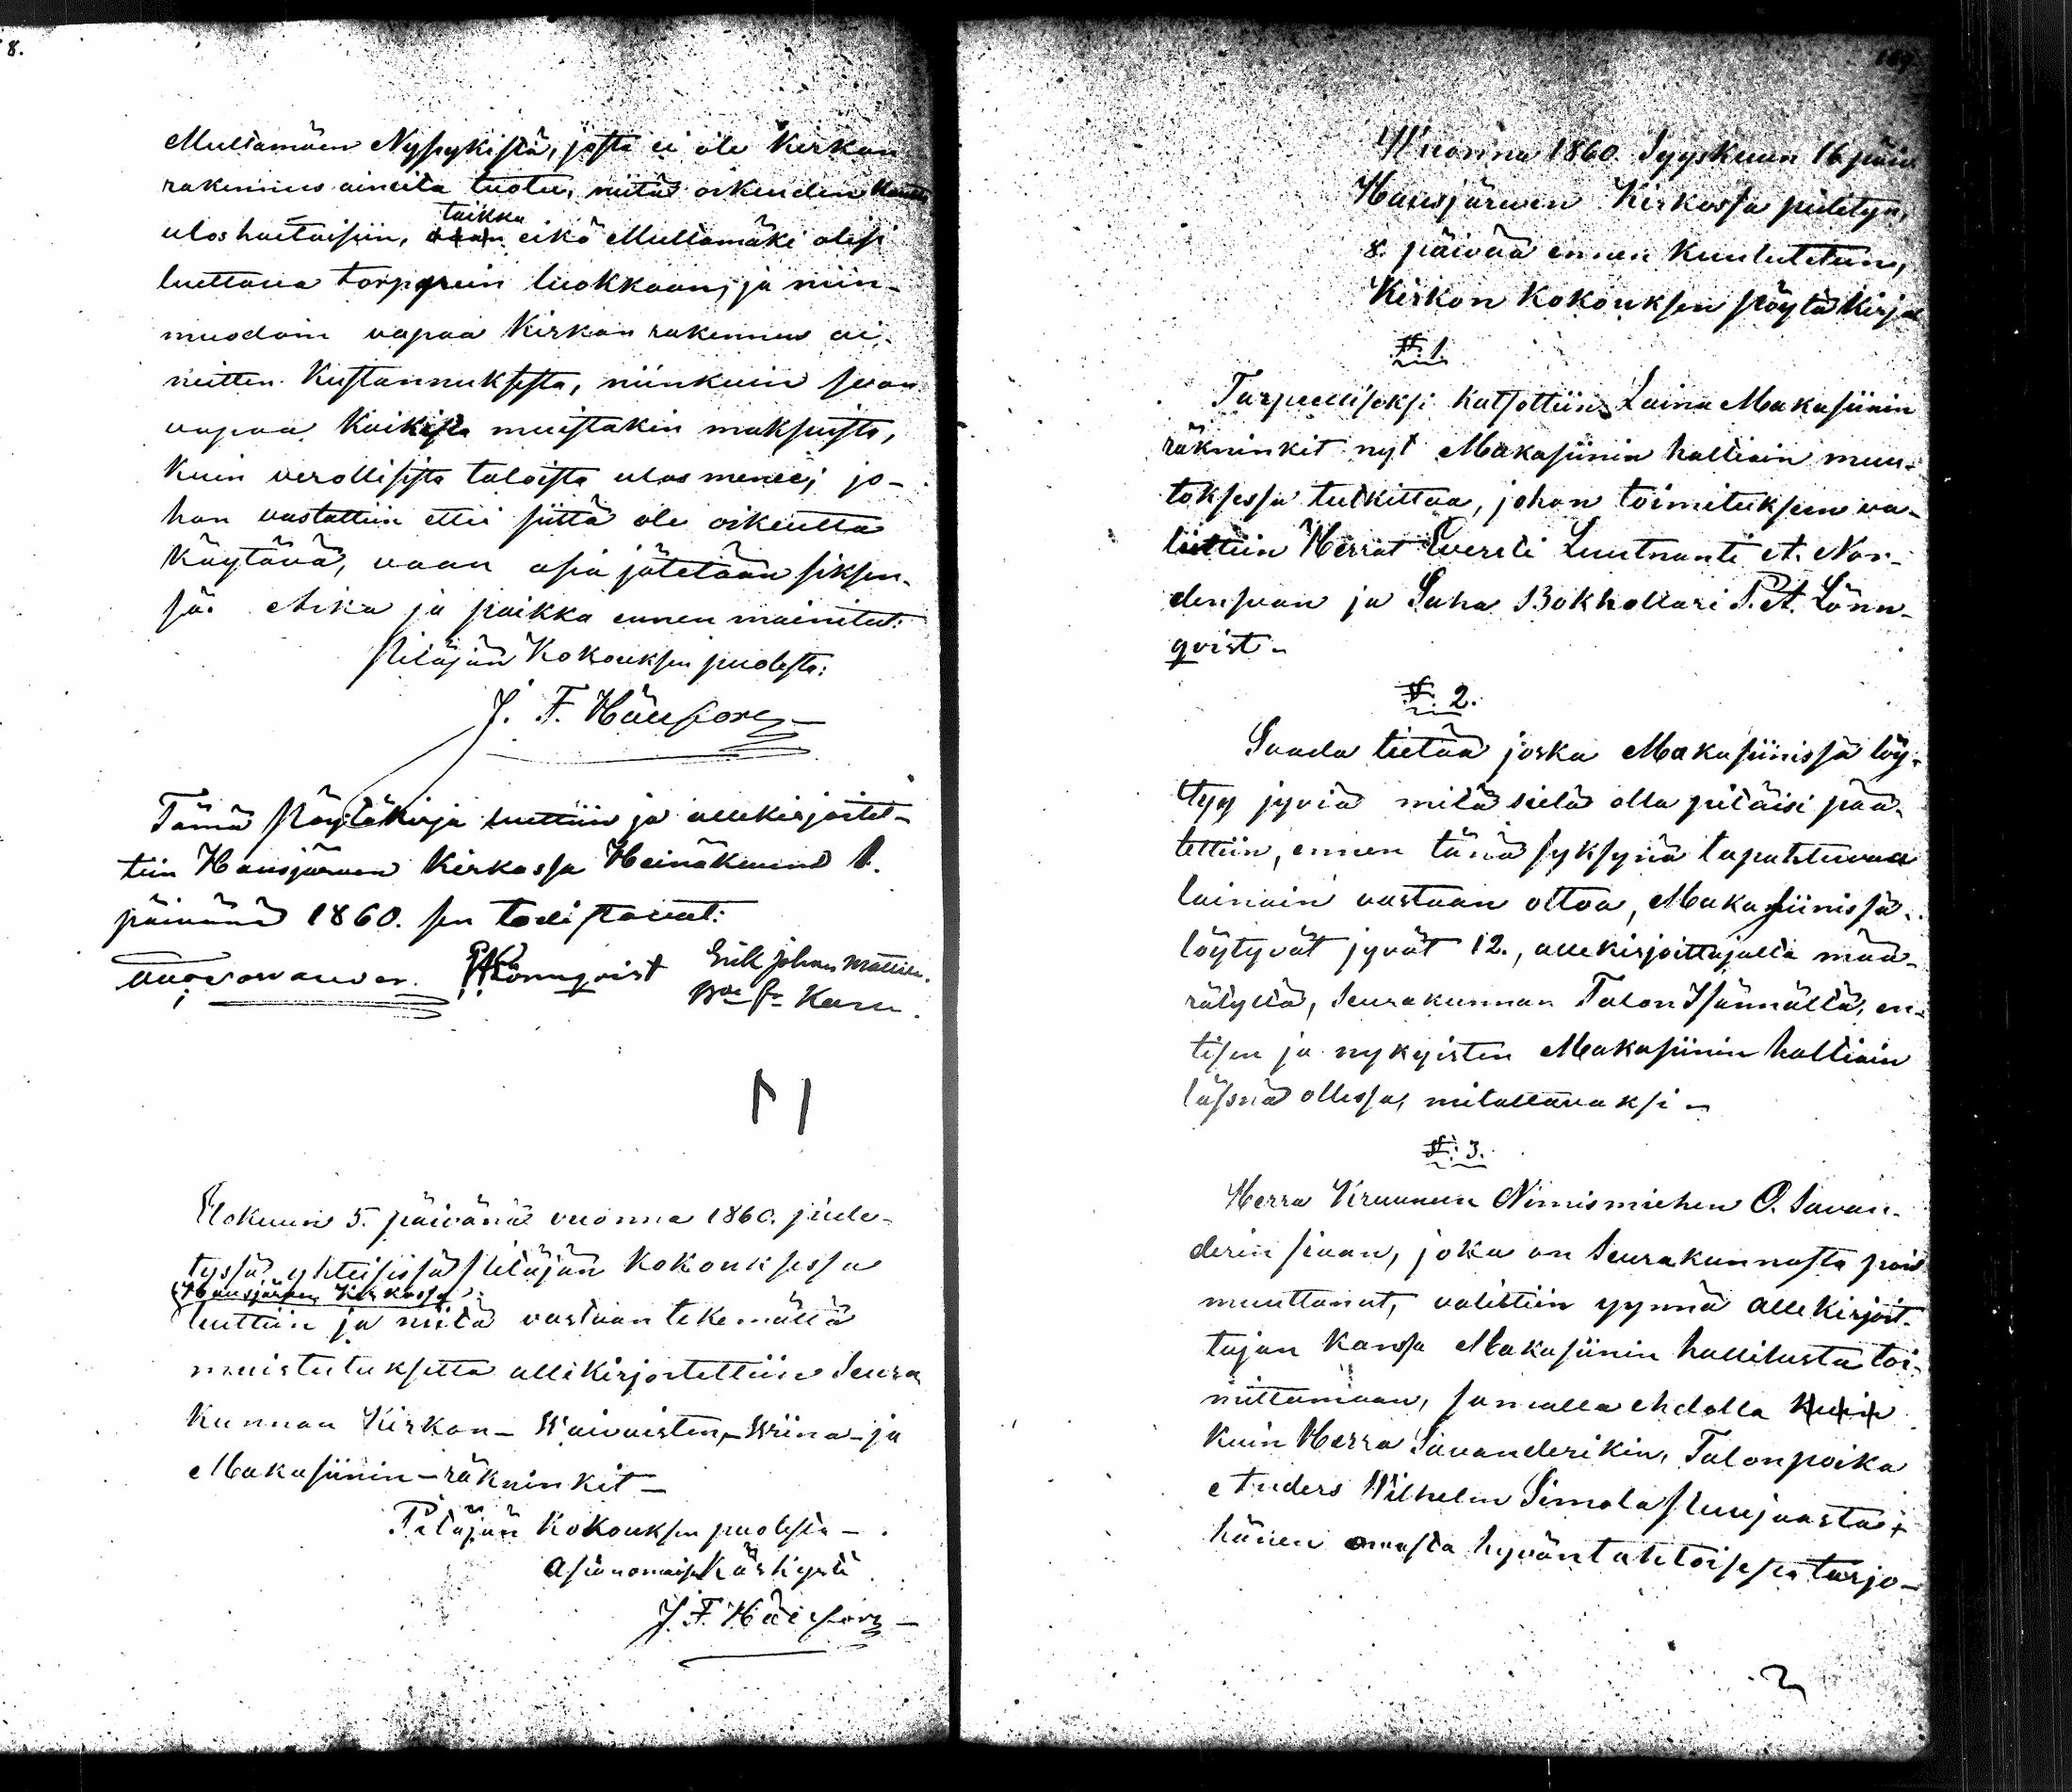 8.
Mullamäen Nypykistä, josta ei ole Kirkon
rakennus aineita tuotu, niitä oikeuden kautta
taikka
uloshaetaisiin, eikö Mullamäki olisi
luettava torpparein luokkaan, ja niin-
muodoin vapaa Kirkon rakennus ai-
neitten Kustannuksesta, niinkuin se on
vapaa kaikista muistakin maksuista,
Kuin verollisista taloista ulos menee; jo-
hon vastattiin ettei siittä ole oikeutta
Käytävä, vaan asia jätetään siksen-
sä. Aika ja paikka ennen mainitut:
Pitäjän Kokouksen puolesta:
J. F.
Tämä Pöytäkirja luettiin ja allekirjoitet-
tiin Hausjärven Kirkossa Heinäkuun 1.
päivänä 1860. sen todistavat:
Lönnqvist Erik Johan Mattila.
Elokuun 5. päivänä vuonna 1860. pide-
tyssä yhteisissä Pitäjän Kokouksessa
Hausjärven Kirkossa
luettiin ja niitä vastaan tekemättä
muistutuksetta allekirjoitettiin Seura
Kunnan Kirkon- Waivaisten,- Wiina- ja
Makasiinin-räkninkit-
Pitäjän Kokouksen puolesta-
Asianomaisen Käskystä
J. F.
189.
Wuonna 1860. Syyskuun 16 päiv.
Hausjärven Kirkossa pidetyn,
8. päivää ennen Kuulutetun,
Kirkon Kokouksen Pöytäkirja
§. 1.
Tarpeelliseksi katsottiin Laina Makasiinin
räkninkit nyt Makasiinin haltiain muu-
toksessa tutkittaa, johon toimituksen va-
littiin Herrat Eversti Luutnanti A. Nor-
denswan ja Saha Bokhollari P. A. Lönn-
qvist-
§. 2.
Saada tietää joska Makasiinissa löy-
tyy jyviä mitä sielä olla pitäisi pää-
tettiin, ennen tänä syksynä tapahtuvaa
lainain vastaan ottoa, Makasiinissa
löytyvät jyvät 12., allekirjoittajalta mää-
rätyllä, Seurakunnan Talon Isännällä, en-
tisen ja nykyisten Makasiinin haltiain
läsnä ollessa, mitattavaksi-
§. 3.
Herra Kruunun Nimismiehen O. Savan-
derin siaan, joka on Seurakunnasta pois
muuttanut, valittiin ynnä allekirjoit-
tajan kanssa Makasiinin hallitusta toi-
mittamaan, samalla ehdolla kuin
Kuin Herra Savanderikin, Talonpoika
Anders Wilhelm Simola Puujaasta
hänen omasta hyväntahtoisesta tarjo-